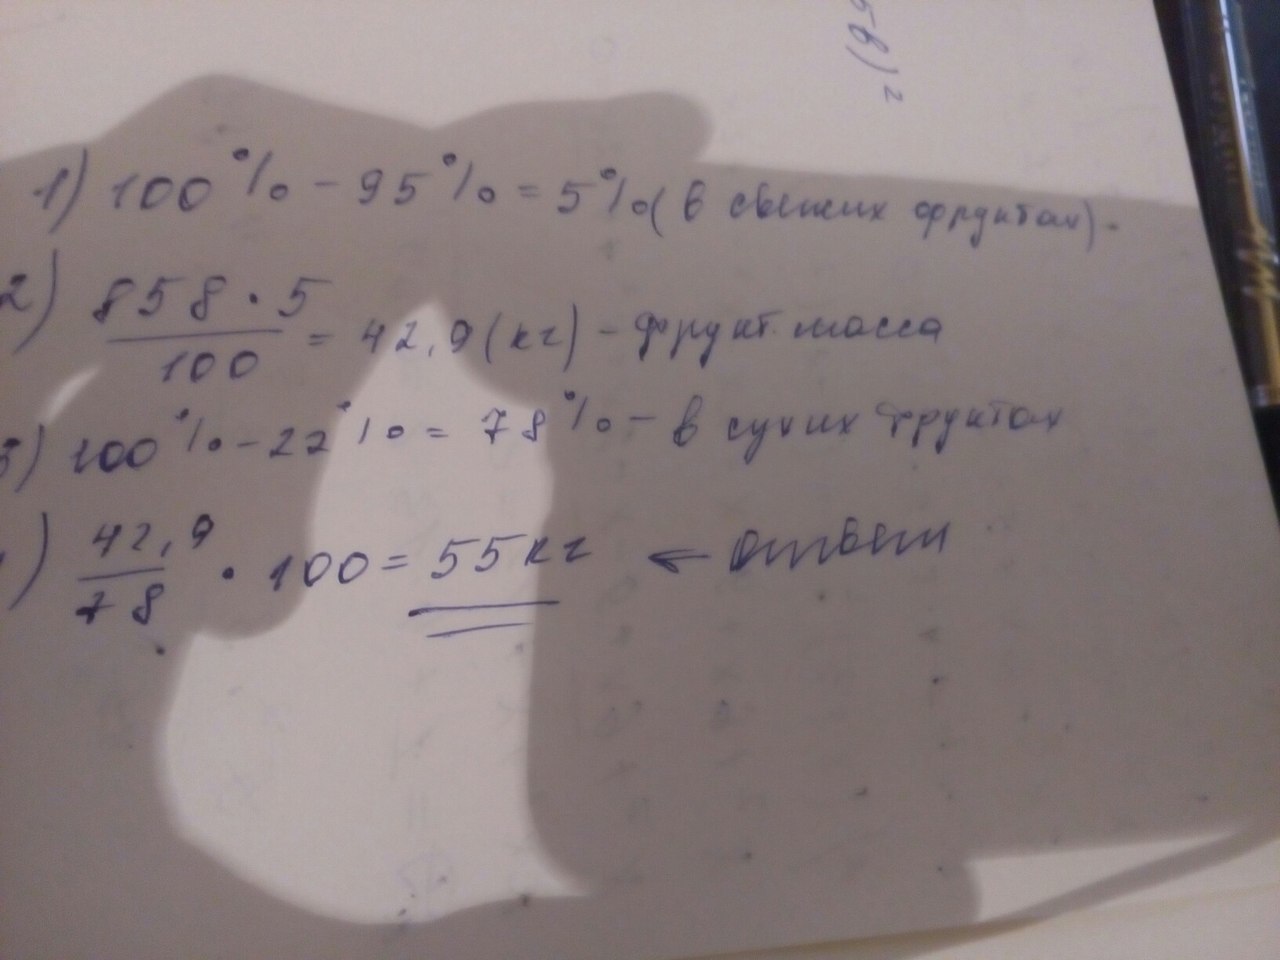 5в)²
1) 100% - 95% = 5% (в свежих фруктах).
2) 858 · 5 / 100 = 42,9 (кг) - фрукт. масса
3) 100% - 22% = 78% - в сухих фруктах
) 42,9 / 78 · 100 = 55 кг ← ответ